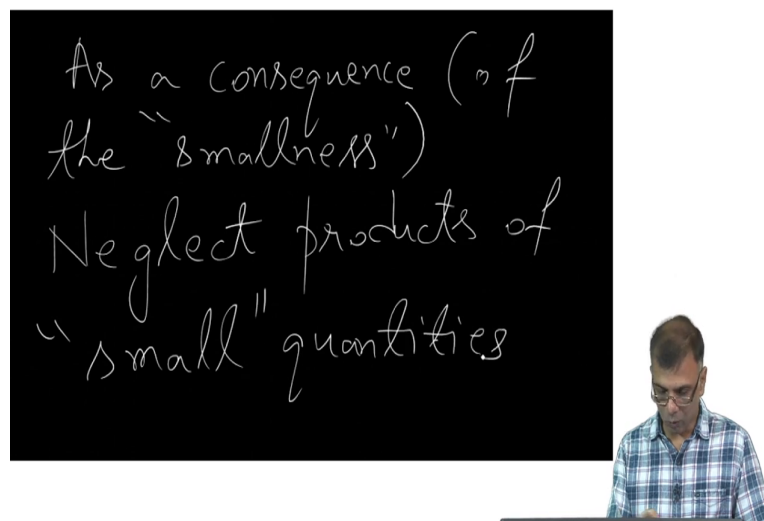 As a consequence (of
the "smallness")
Neglect products of
"small" quantities